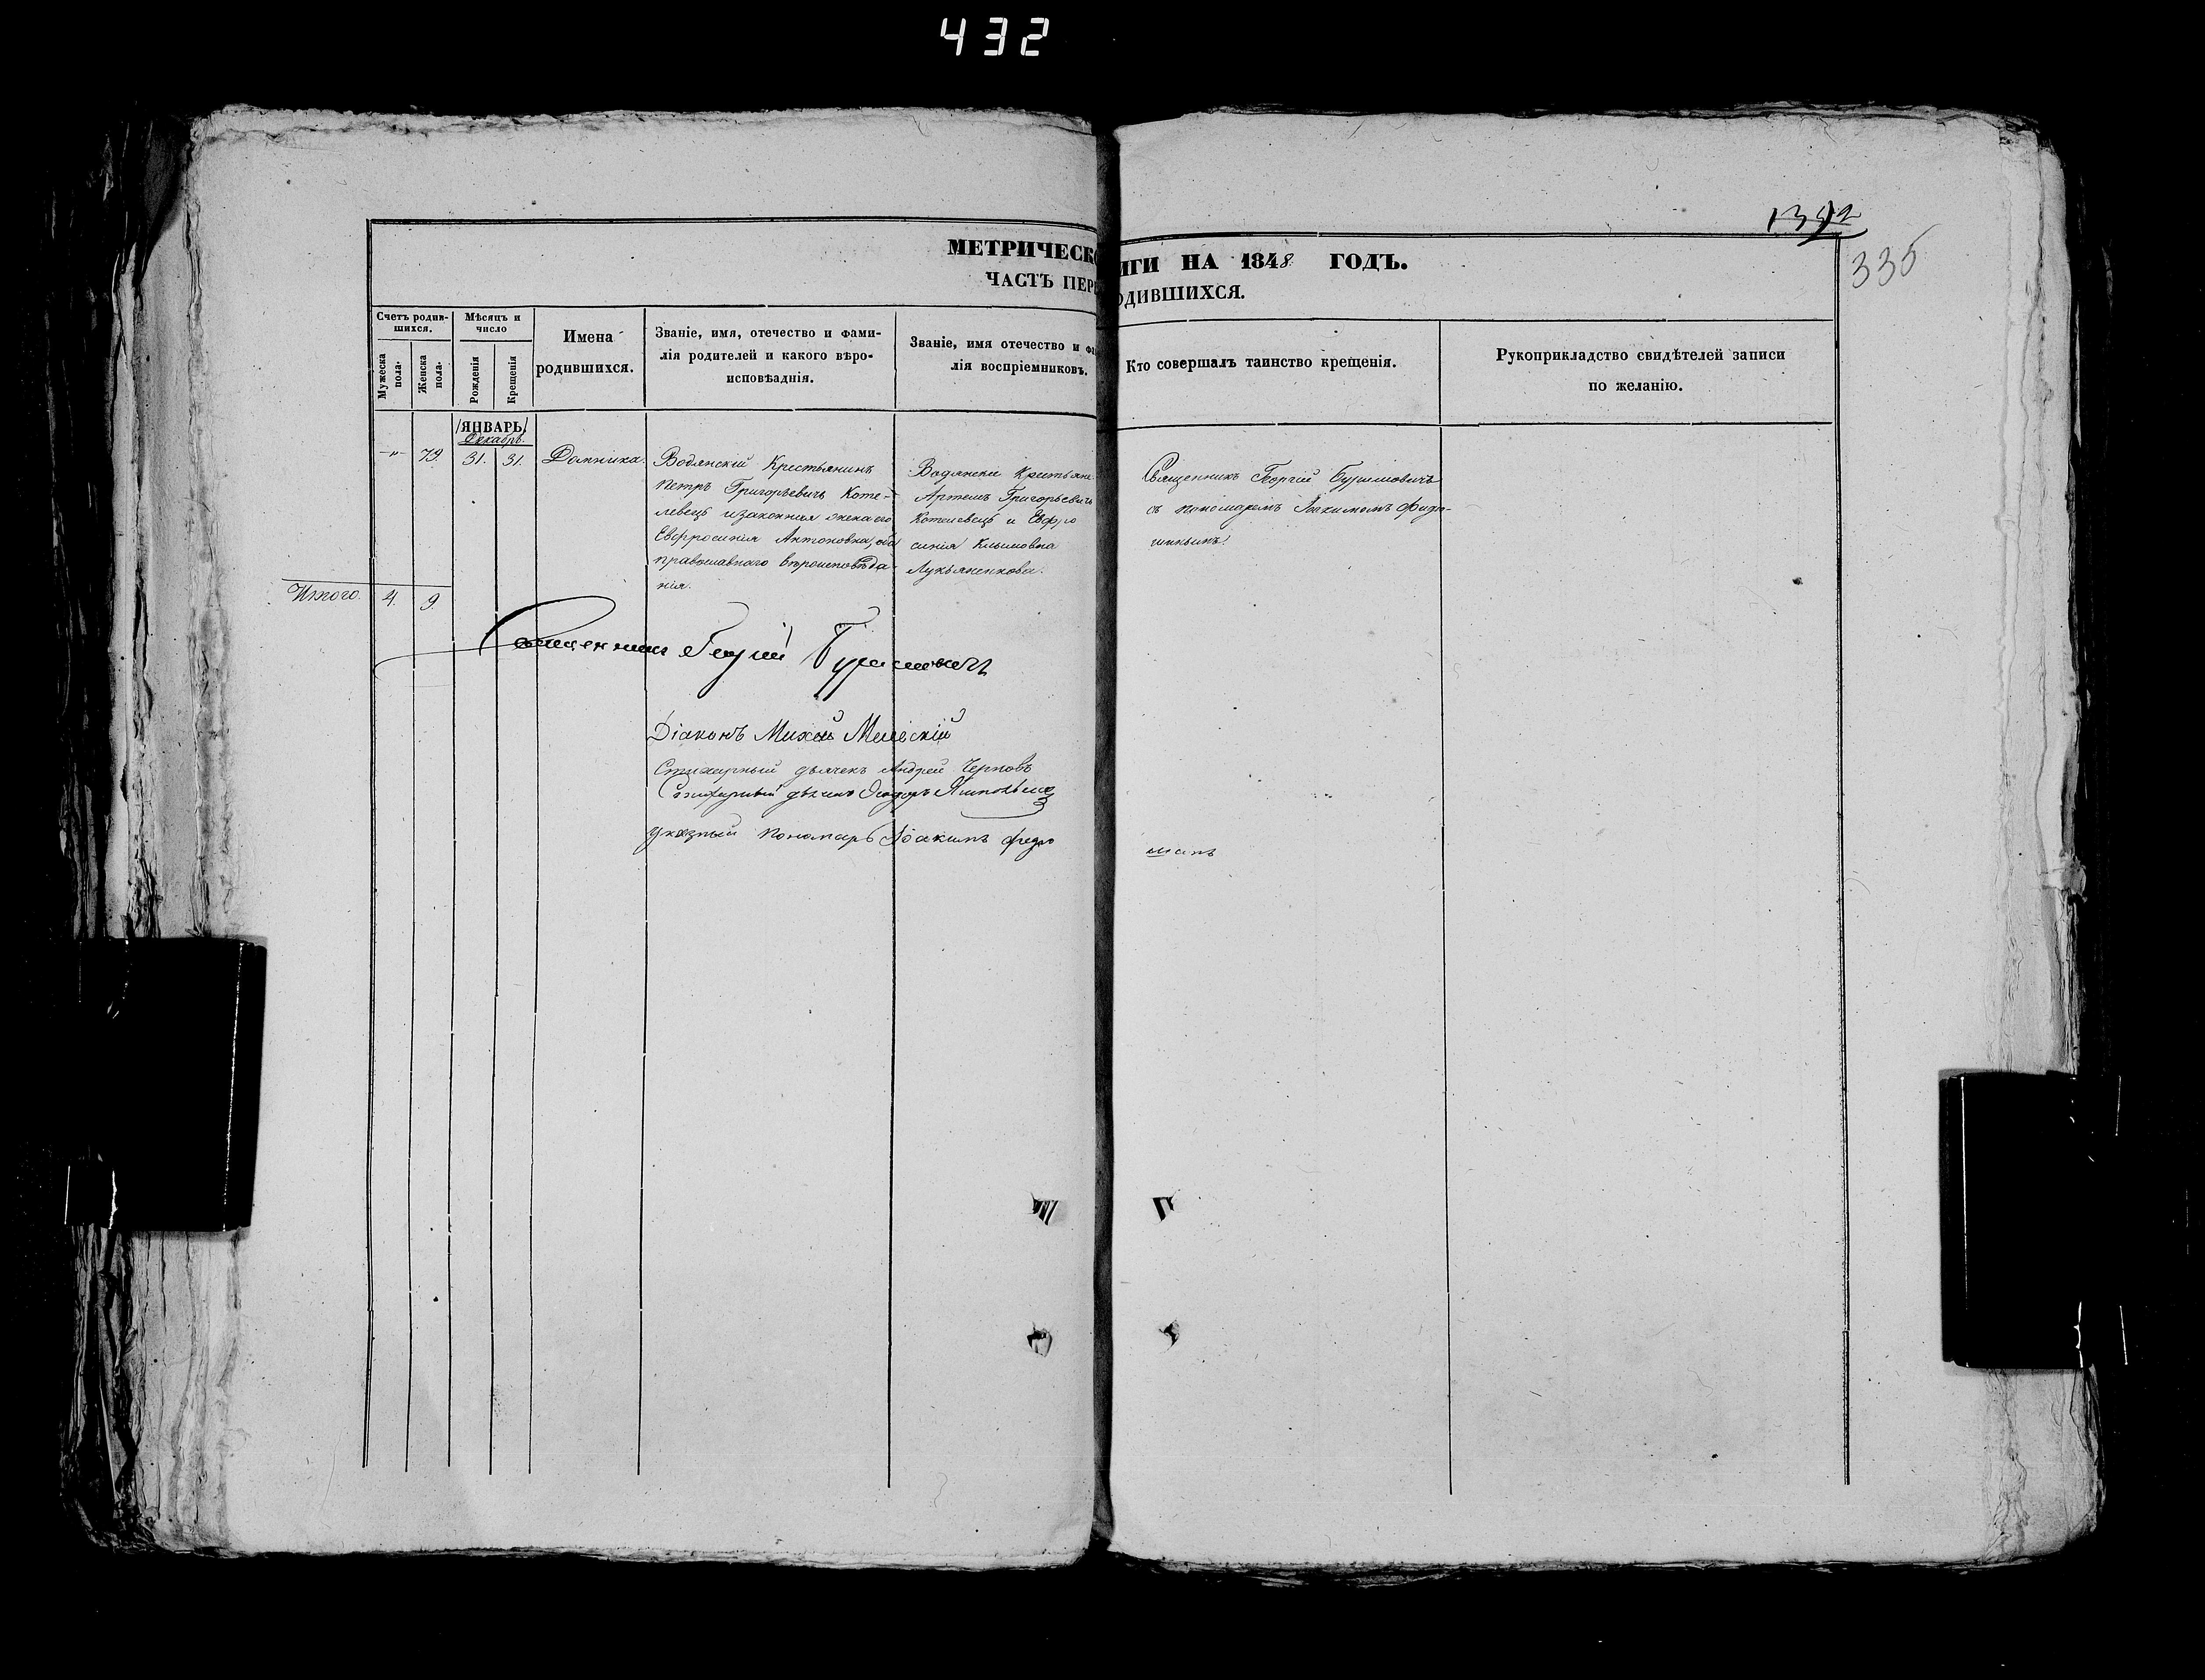 432
1392
335
МЕТРИЧЕСКО ИГИ НА 1848 ГОДЪ.
ЧАСТЬ ПЕРВ ОДИВШИХСЯ.
Счетъ родив-
шихся.
Мужеска пола.
Женска пола.
Мѣсяцъ и
число
Рожденія
Крещенія
Имена
родившихся.
Званіе, имя, отечество и фами-
лія родителей и какого вѣро-
исповѣаднія.
Званіе, имя отечество и фа
лія воспріемниковъ.
Кто совершалъ таинство крещенія.
Рукоприкладство свидѣтелей записи
по желанію.
/ЯНВАРЬ/
Декабрь.
-„- 79. 31. 31. Домника.
Водянскій Крестьянинъ
Петръ Григорьевичъ Коте-
левецъ и законная жена его
Евфросинія Антоновна, оба
православнаго вѣроисповѣда-
нія.
Водянски Крестьяне
Артемъ Григорьевичъ
Котелевецъ и Евфро
синія Климовна
Лукьяненкова.
Священникъ Георгій
съ пономаремъ Іоакимомъ
Итого. 4. 9.
Священникъ Георгій
Діаконъ Михаил
Стихарный дьячекъ Андрей Черновъ
Стихарный дьячекъ Ѳеодоръ
Указный Пономарь Іоакимъ